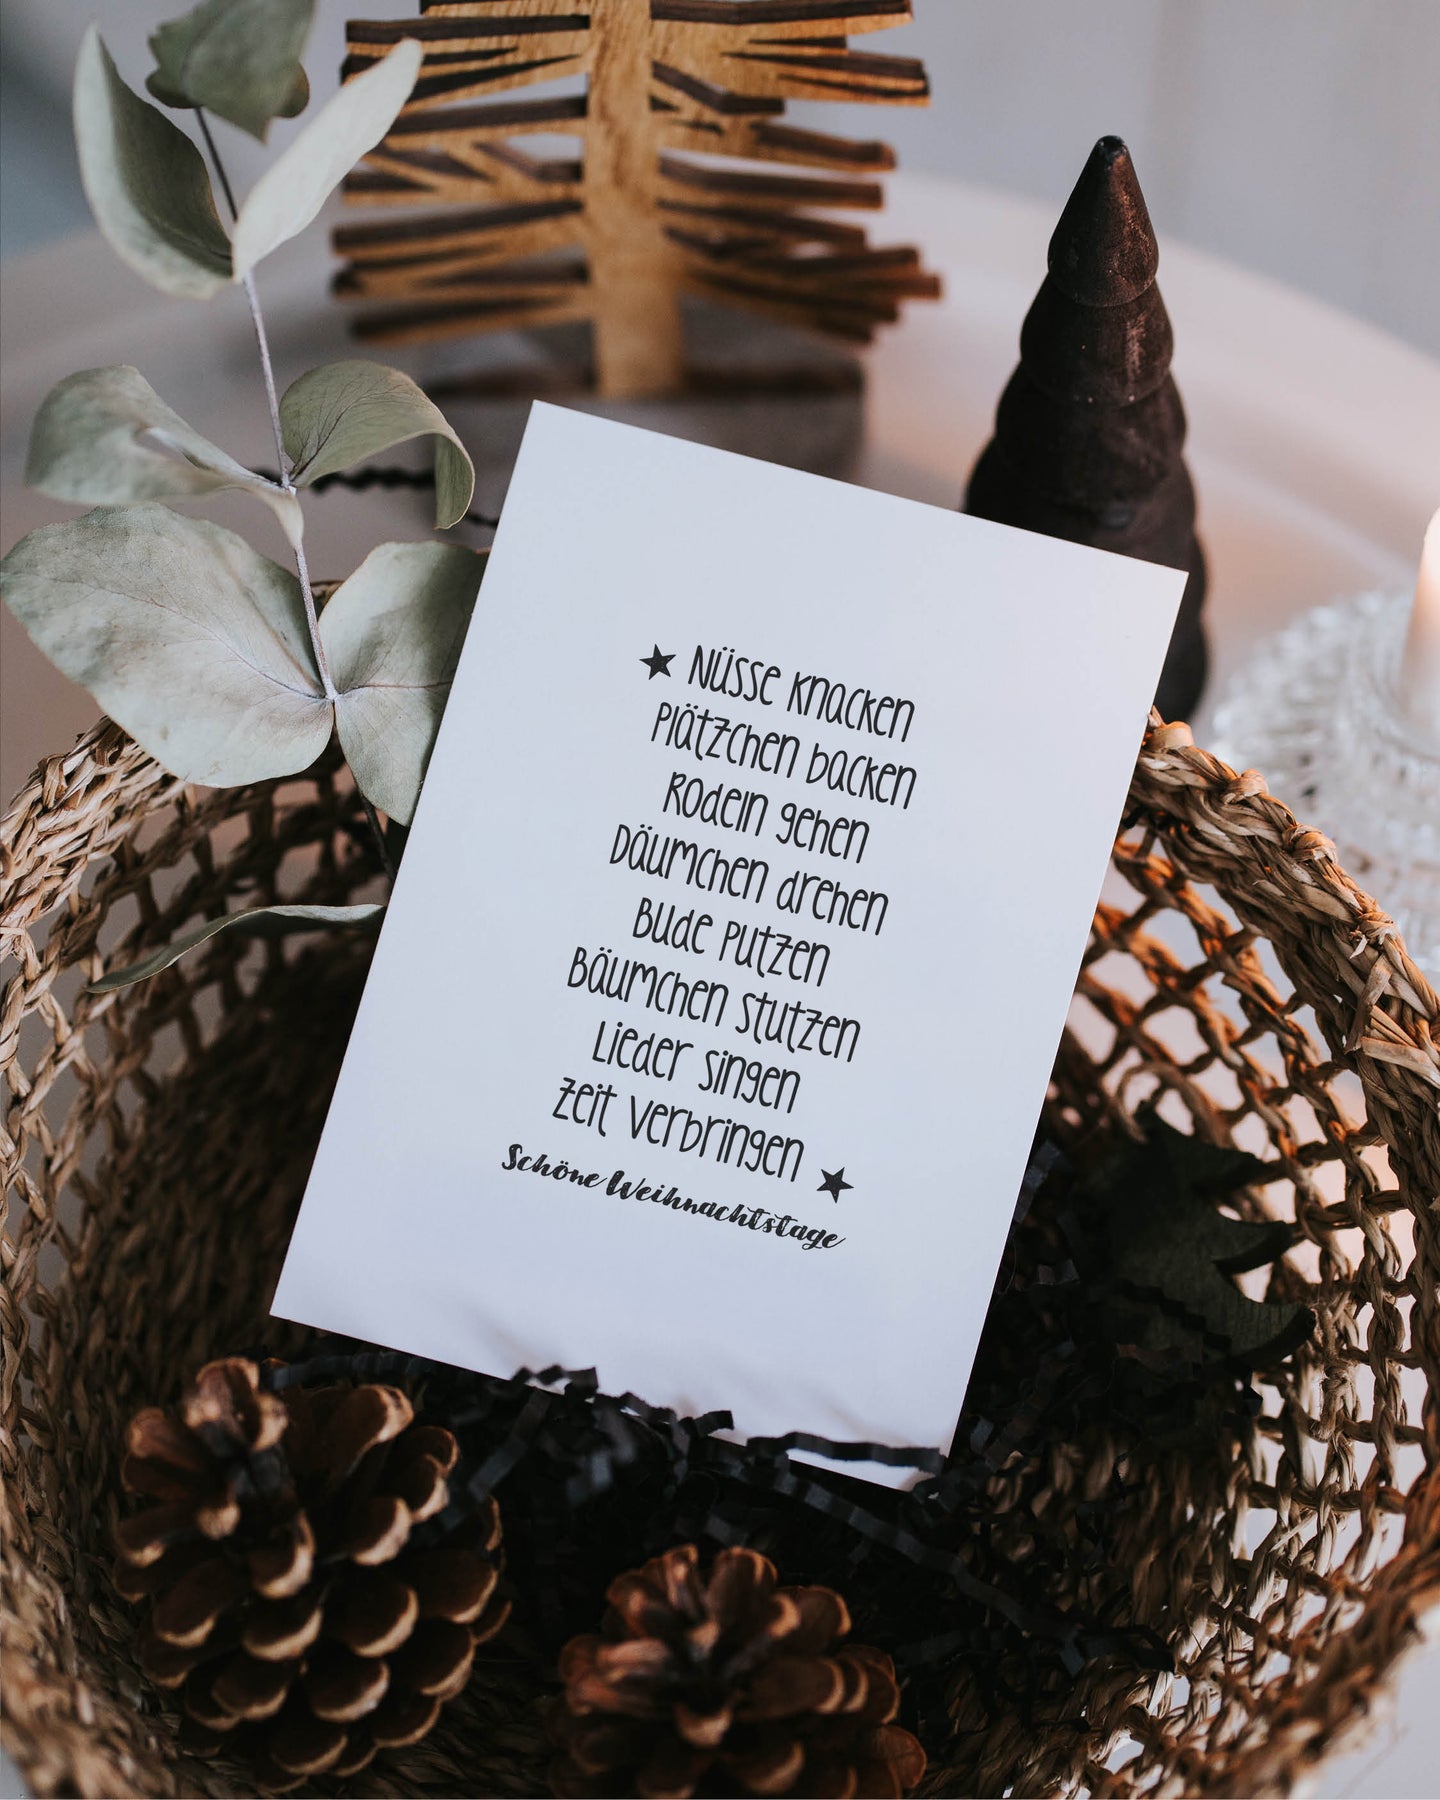 ★ Nüsse knacken
Plätzchen backen
Rodeln gehen
Däumchen drehen
Bude putzen
Bäumchen stutzen
Lieder singen
Zeit verbringen ★
Schöne Weihnachtstage